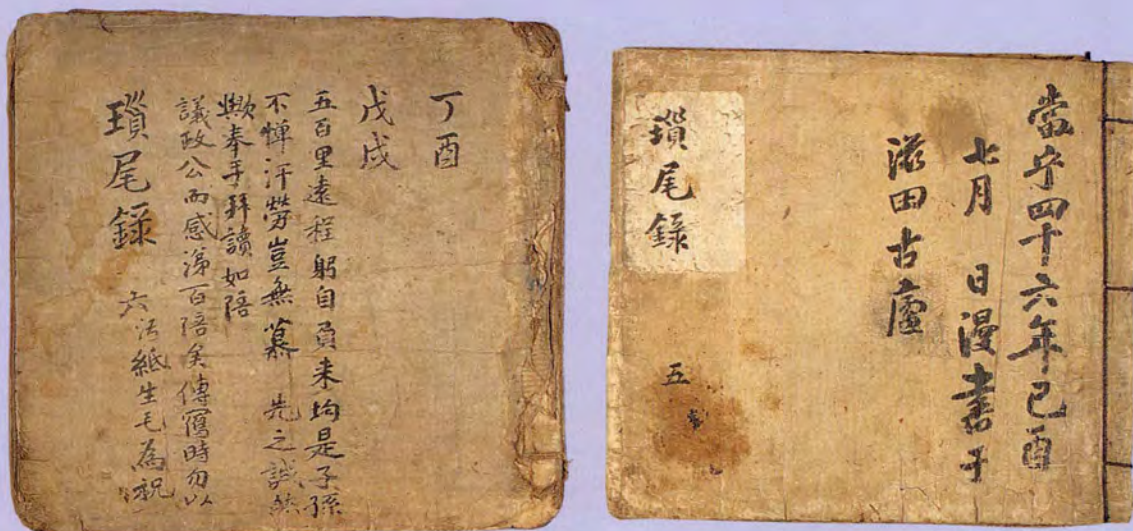 丁酉
戊戌
五百里遠程躬自負来均是子孫
不憚汗勞豈無慕 先之誠
歟奉手拜讀如陪
議政公而感涕百陪矣傳寫時勿以
污紙生毛為祝
瑣尾録
當宁四十六年己酉
七月 日漫書于
滋田古廬
瑣尾録
五